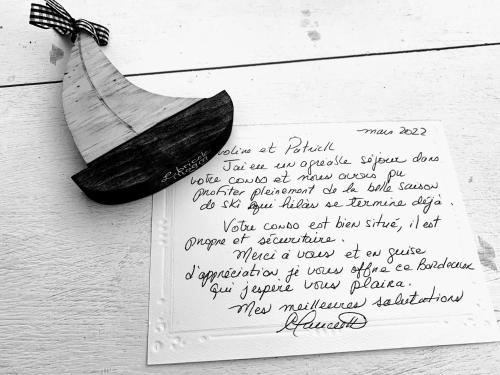 mars 2022
oline et Patrick
J'ai eu un agréable séjour dans
votre condo et nous avons pu
profiter pleinement de la belle saison
de ski qui hélas se termine déjà.
Votre condo est bien situé, il est
propre et sécuritaire.
Merci à vous et en guise
d'appréciation je vous offre ce Bordeaux
qui j'espère vous plaira.
Mes meilleures salutations